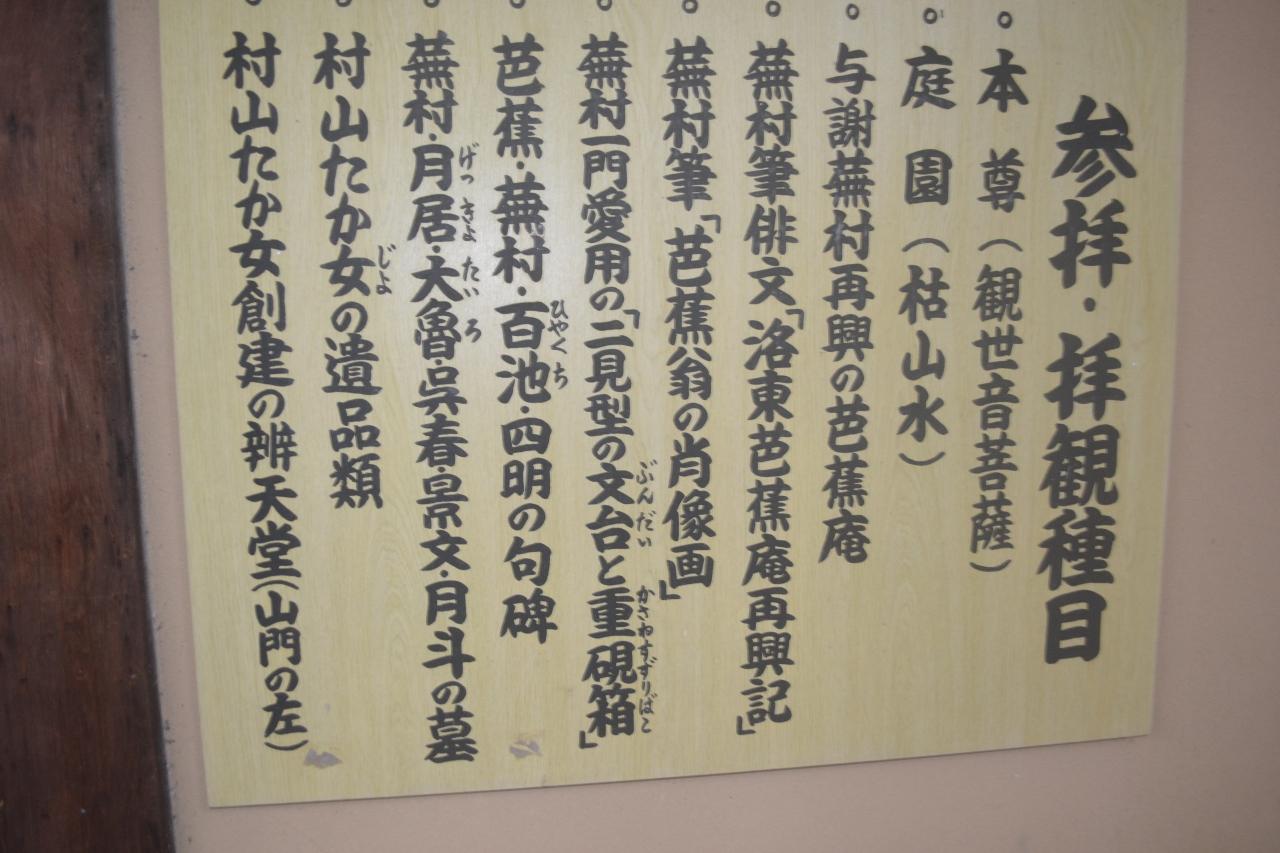 参拝・拝観種目
。本尊（観世音菩薩）
。庭園（枯山水）
。与謝蕪村再興の芭蕉庵
。蕪村筆俳文「洛東芭蕉庵再興記」
。蕪村筆「芭蕉翁の肖像画」
。蕪村一門愛用の「二見型の文台と重硯箱」
ぶんだい かさねすずりばこ
。芭蕉・蕪村・百池・四明の句碑
ひやくち
。蕪村・月居・大魯・呉春・景文・月斗の墓
げっきよ たいろ
。村山たか女の遺品類
じよ
。村山たか女創建の辨天堂（山門の左）